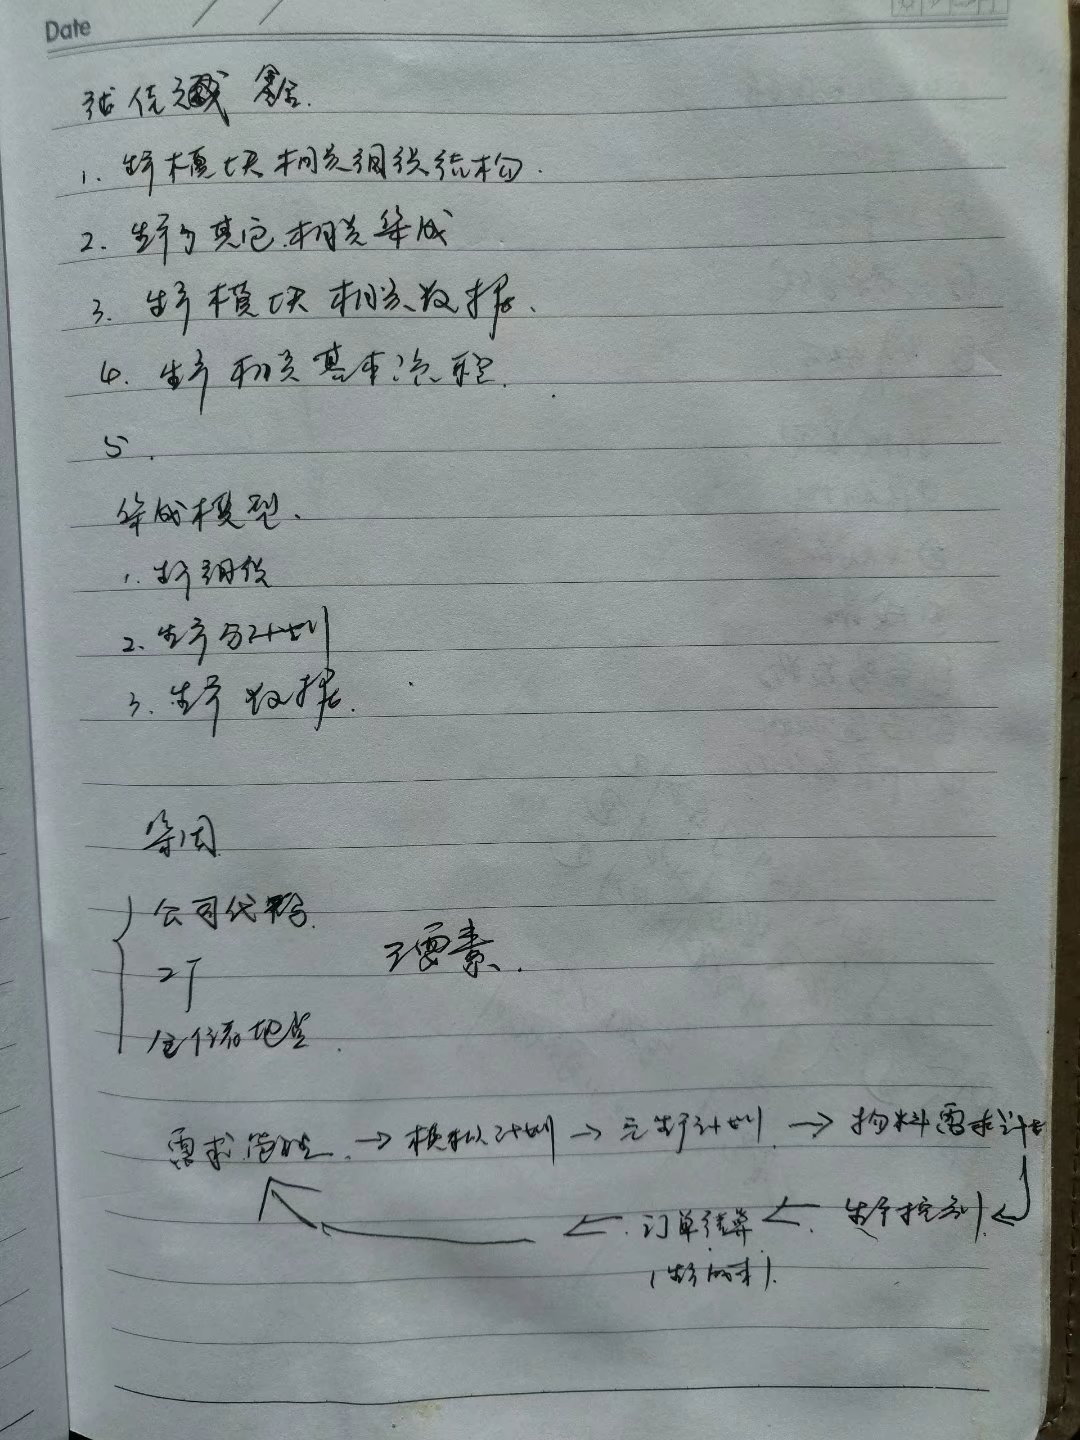 Date
1. 生产模块相关组织结构.
2. 生产与其它相关集成
3. 生产模块相关数据.
4. 生产相关基本流程.
5.
集成模型.
1. 生产组织
2. 生产与计划
3. 生产数据.
集团
公司代码.
工厂
库存地点.
要素.
需求管理 → 模拟计划 → 主生产计划 → 物料需求计划
← 订单结算 ← 生产控制 ←
(生产成本).